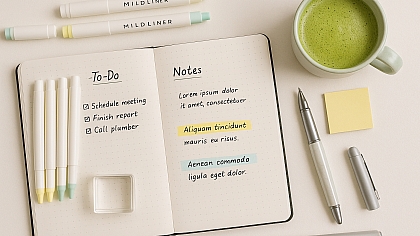 MILDLINER
MILDLINER
To-Do
Schedule meeting
Finish report
Call plumber
Notes
Lorem ipsum dolor
it amet, consectetuer
Aliquam tincidunt
mauris eu risus.
Aenean commodo
ligula eget dolor.